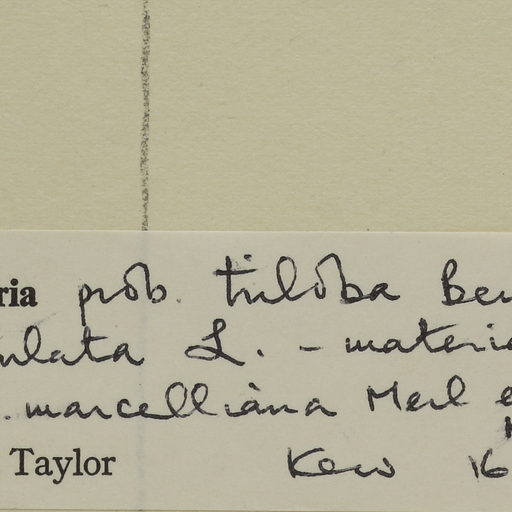 ria prob. triloba Ben
ulata L. - materia
. marcelliana Merl e
Taylor Kew 16